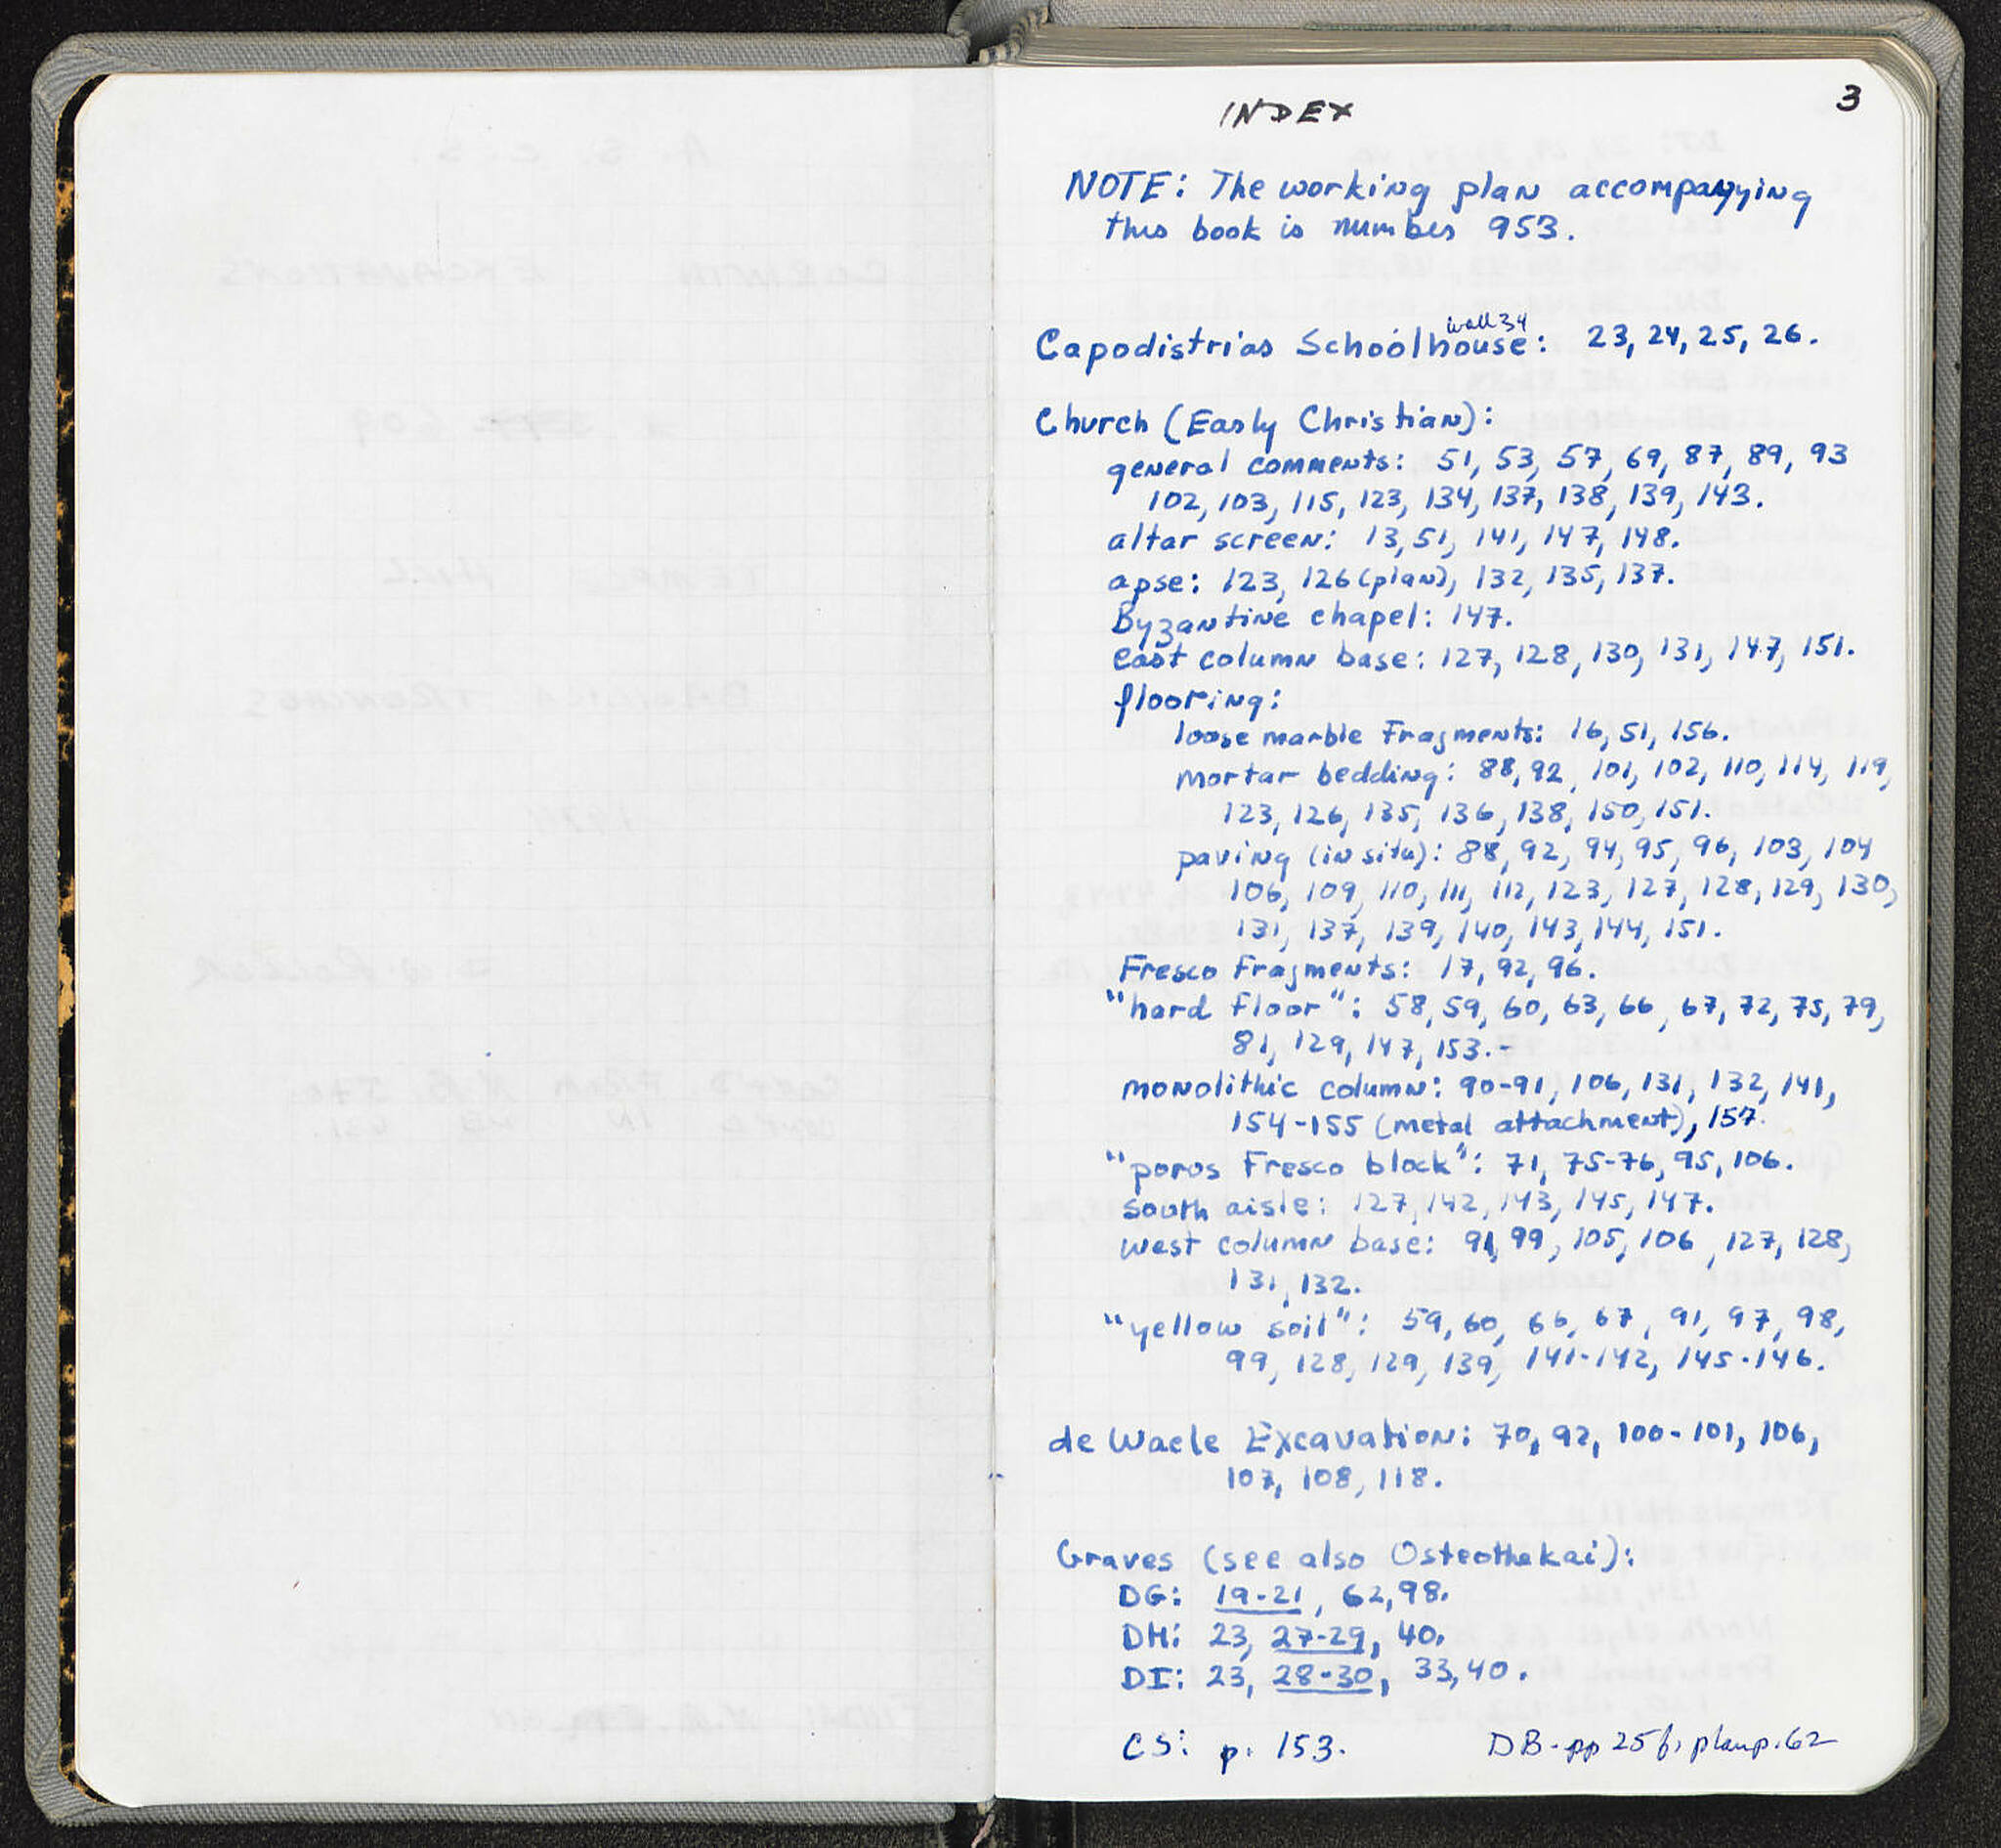 INDEX
3
NOTE: The working plan accompanying
this book is number 953.
wall 34
Capodistrias Schoolhouse: 23, 24, 25, 26.
Church (Early Christian):
general comments: 51, 53, 57, 69, 87, 89, 93
102, 103, 115, 123, 134, 137, 138, 139, 143.
altar screen: 13, 51, 141, 147, 148.
apse: 123, 126 (plan), 132, 135, 137.
Byzantine chapel: 147.
east column base: 127, 128, 130, 131, 147, 151.
flooring:
loose marble fragments: 16, 51, 156.
mortar bedding: 88, 92, 101, 102, 110, 114, 119,
123, 126, 135, 136, 138, 150, 151.
paving (in situ): 88, 92, 94, 95, 96, 103, 104
106, 109, 110, 111, 112, 123, 127, 128, 129, 130,
131, 137, 139, 140, 143, 144, 151.
Fresco fragments: 17, 92, 96.
"hard floor": 58, 59, 60, 63, 66, 67, 72, 75, 79,
81, 129, 147, 153.-
monolithic column: 90-91, 106, 131, 132, 141,
154-155 (metal attachment), 157.
"poros Fresco block": 71, 75-76, 95, 106.
south aisle: 127, 142, 143, 145, 147.
west column base: 91, 99, 105, 106, 127, 128,
131, 132.
"yellow soil": 59, 60, 66, 67, 91, 97, 98,
99, 128, 129, 139, 141-142, 145-146.
de Waele Excavation: 70, 92, 100-101, 106,
107, 108, 118.
Graves (see also Osteothekai):
DG: 19-21, 62, 98.
DH: 23, 27-29, 40.
DI: 23, 28-30, 33, 40.
CS: p. 153.
DB-pp 25 f, plan p. 62